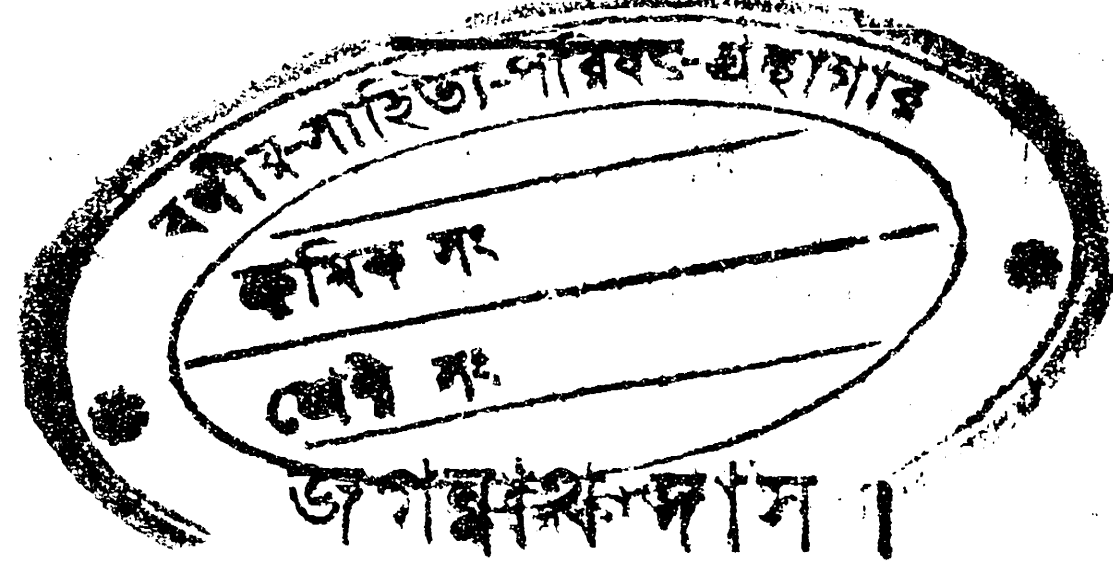 বঙ্গীয়-সাহিত্য-পরিষৎ-গ্রন্থাগার
ক্রমিক সং
শ্রেণী সং
জগন্নাথ-দাস ।